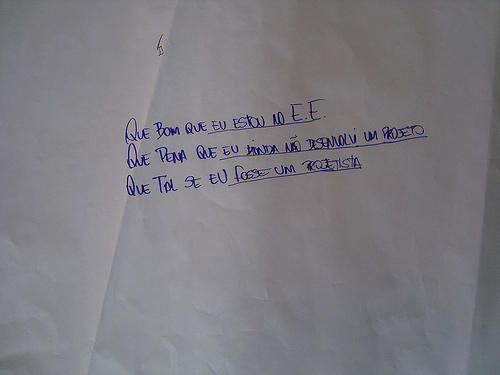 QUE BOM QUE EU ESTOU NO E.E.
QUE PENA QUE EU AINDA NÃO DESENVOLVI UM PROJETO
QUE TAL SE EU FOSSE UM PROJETISTA